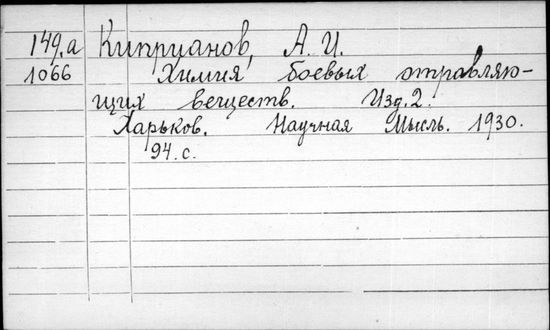 149.а Киприанов, А. И.
1066 Химия боевых отравляю-
щих веществ. Изд. 2.
Харьков. Научная Мысль. 1930.
94. с.